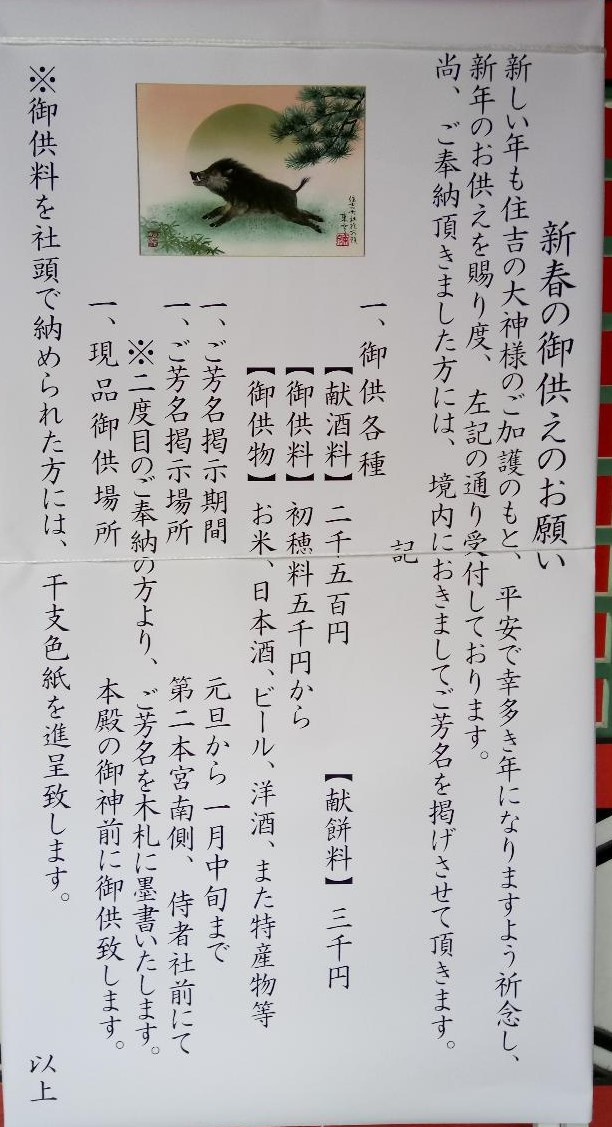 新春の御供えのお願い
新しい年も住吉の大神様のご加護のもと、平安で幸多き年になりますよう祈念し、
新年のお供えを賜り度、左記の通り受付しております。
尚、ご奉納頂きました方には、境内におきましてご芳名を掲げさせて頂きます。
記
一、御供各種
【献酒料】二千五百円 【献餅料】三千円
【御供料】初穂料五千円から
【御供物】お米、日本酒、ビール、洋酒、また特産物等
一、ご芳名掲示期間 元旦から一月中旬まで
一、ご芳名掲示場所 第二本宮南側、侍者社前にて
※二度目のご奉納の方より、ご芳名を木札に墨書いたします。
一、現品御供場所 本殿の御神前に御供致します。
※御供料を社頭で納められた方には、干支色紙を進呈致します。
以上